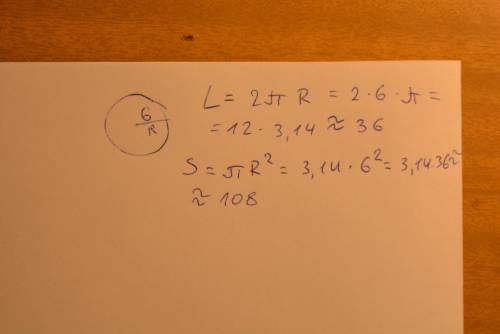 6
R
L = 2π R = 2 · 6 · π =
= 12 · 3,14 ≈ 36
S = πR² = 3,14 · 6² = 3,14 · 36 ≈
≈ 108